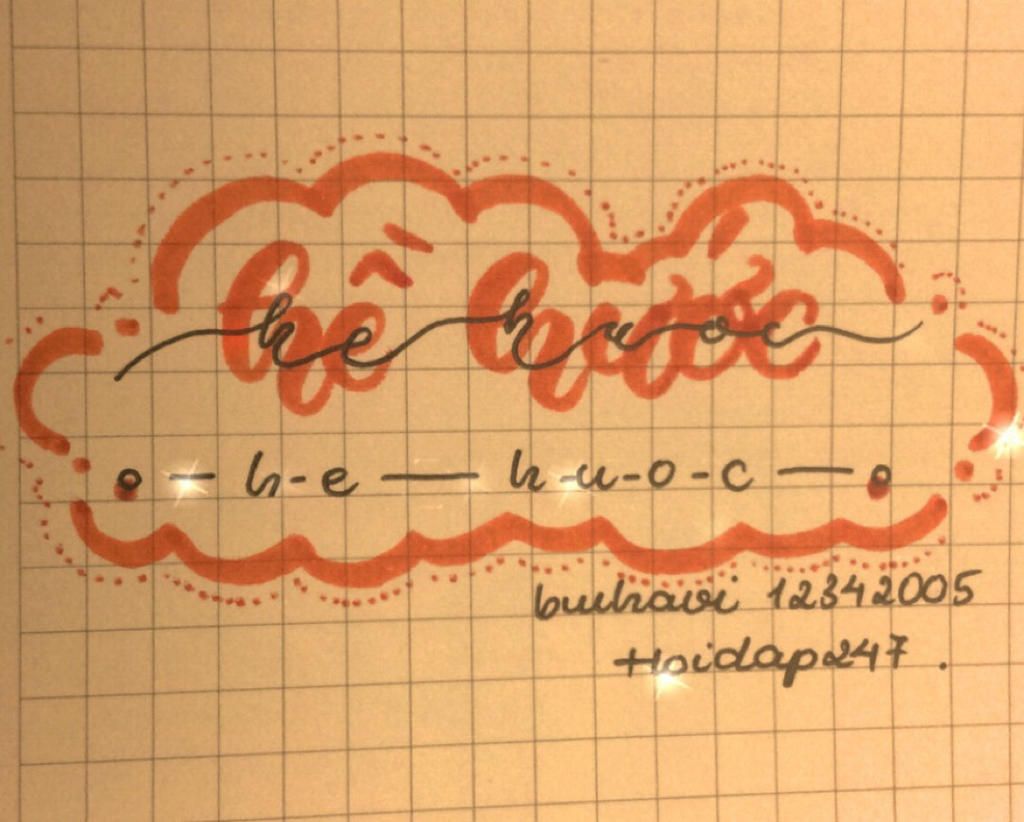 hề hước
he huoc
h-e — h-u-o-c —
buihavi 12342005
Hoidap247.